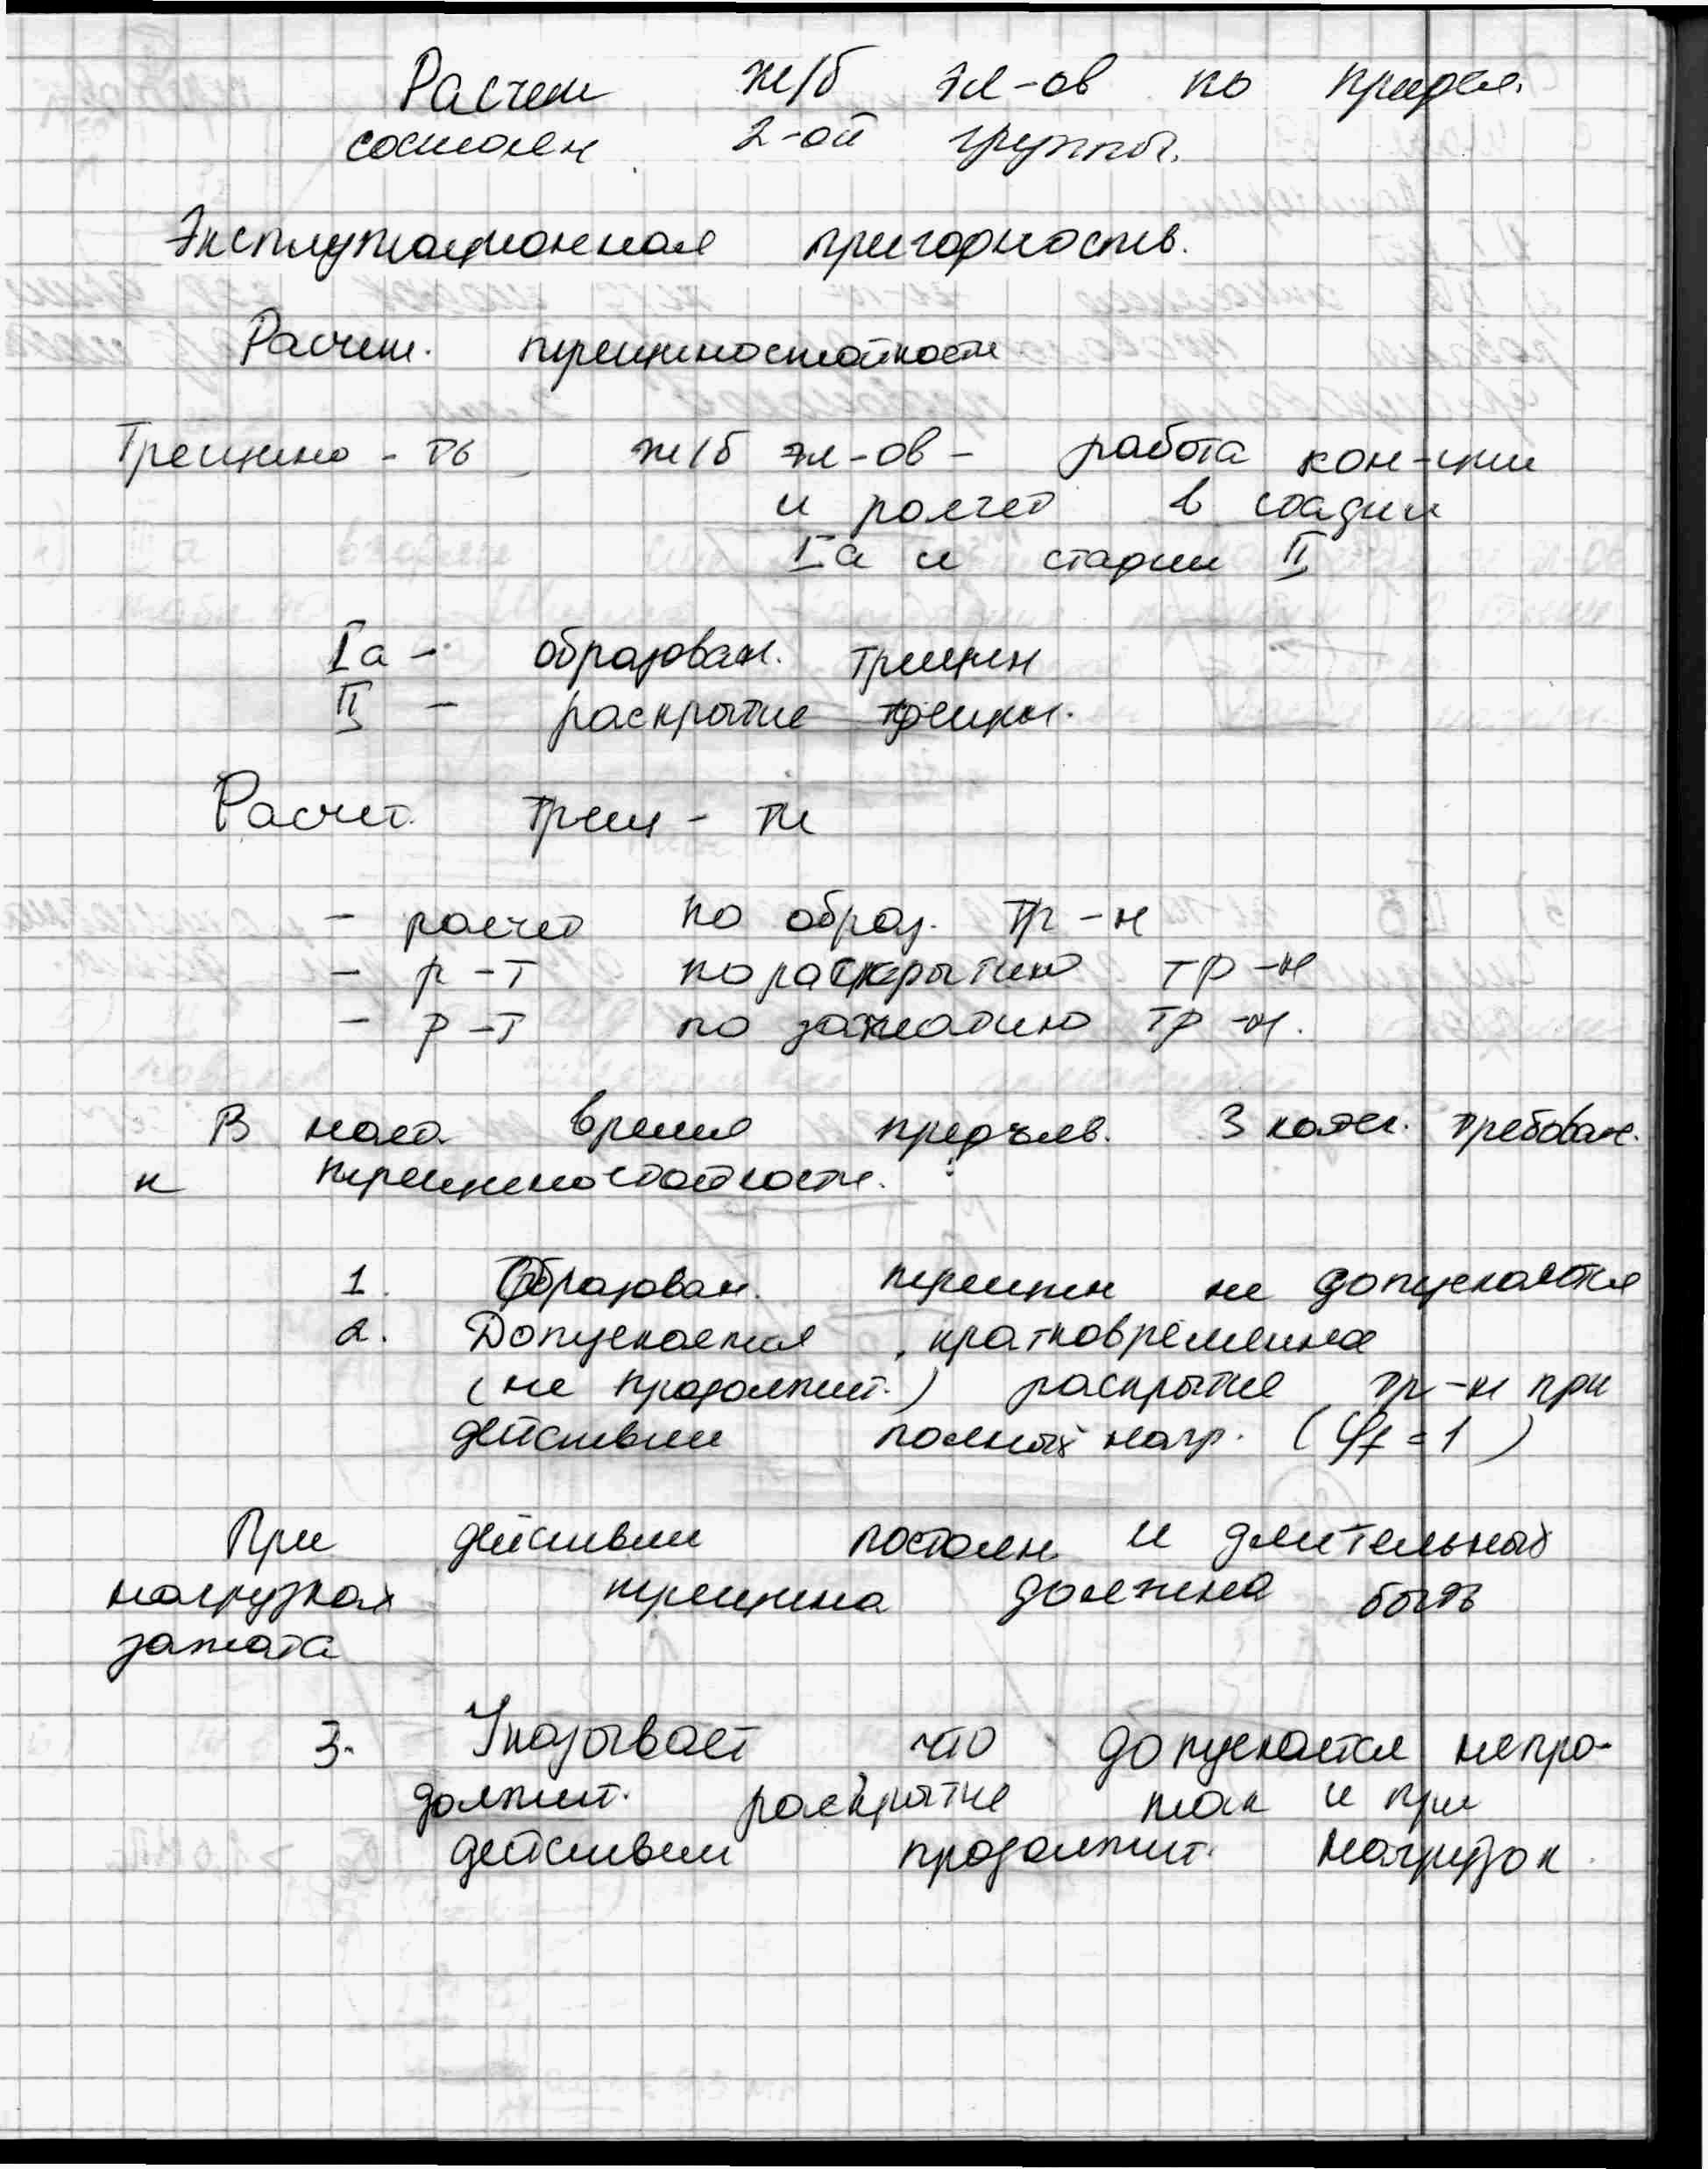 Расчет ж/б эл-ов по предел.
состоян. 2-ой группы.
Эксплутационная пригодность.
Расчет. трещиностойкости
Трещино-ть ж/б эл-ов - работа кон-ции
и расчет в стадии
Iа и стадии II
Iа - образован. трещин
II - раскрытие трещин.
Расчет. трещ-ти
- расчет по образ. тр-н
- р-т по раскрытию тр-н
- р-т по зажатию тр-н.
В наст. время предъяв. 3 катег. требован.
к трещиностойкости:
1. Образован. трещин не допускается
2. Допускается кратковременное
(не продолжит.) раскрытие тр-н при
действии полных нагр. (φf = 1)
При действии постоян. и длительных
нагрузках трещина должна быть
зажата
3. Указывает что допускается непро-
должит. раскрытие так и при
действии продолжит. нагрузок.